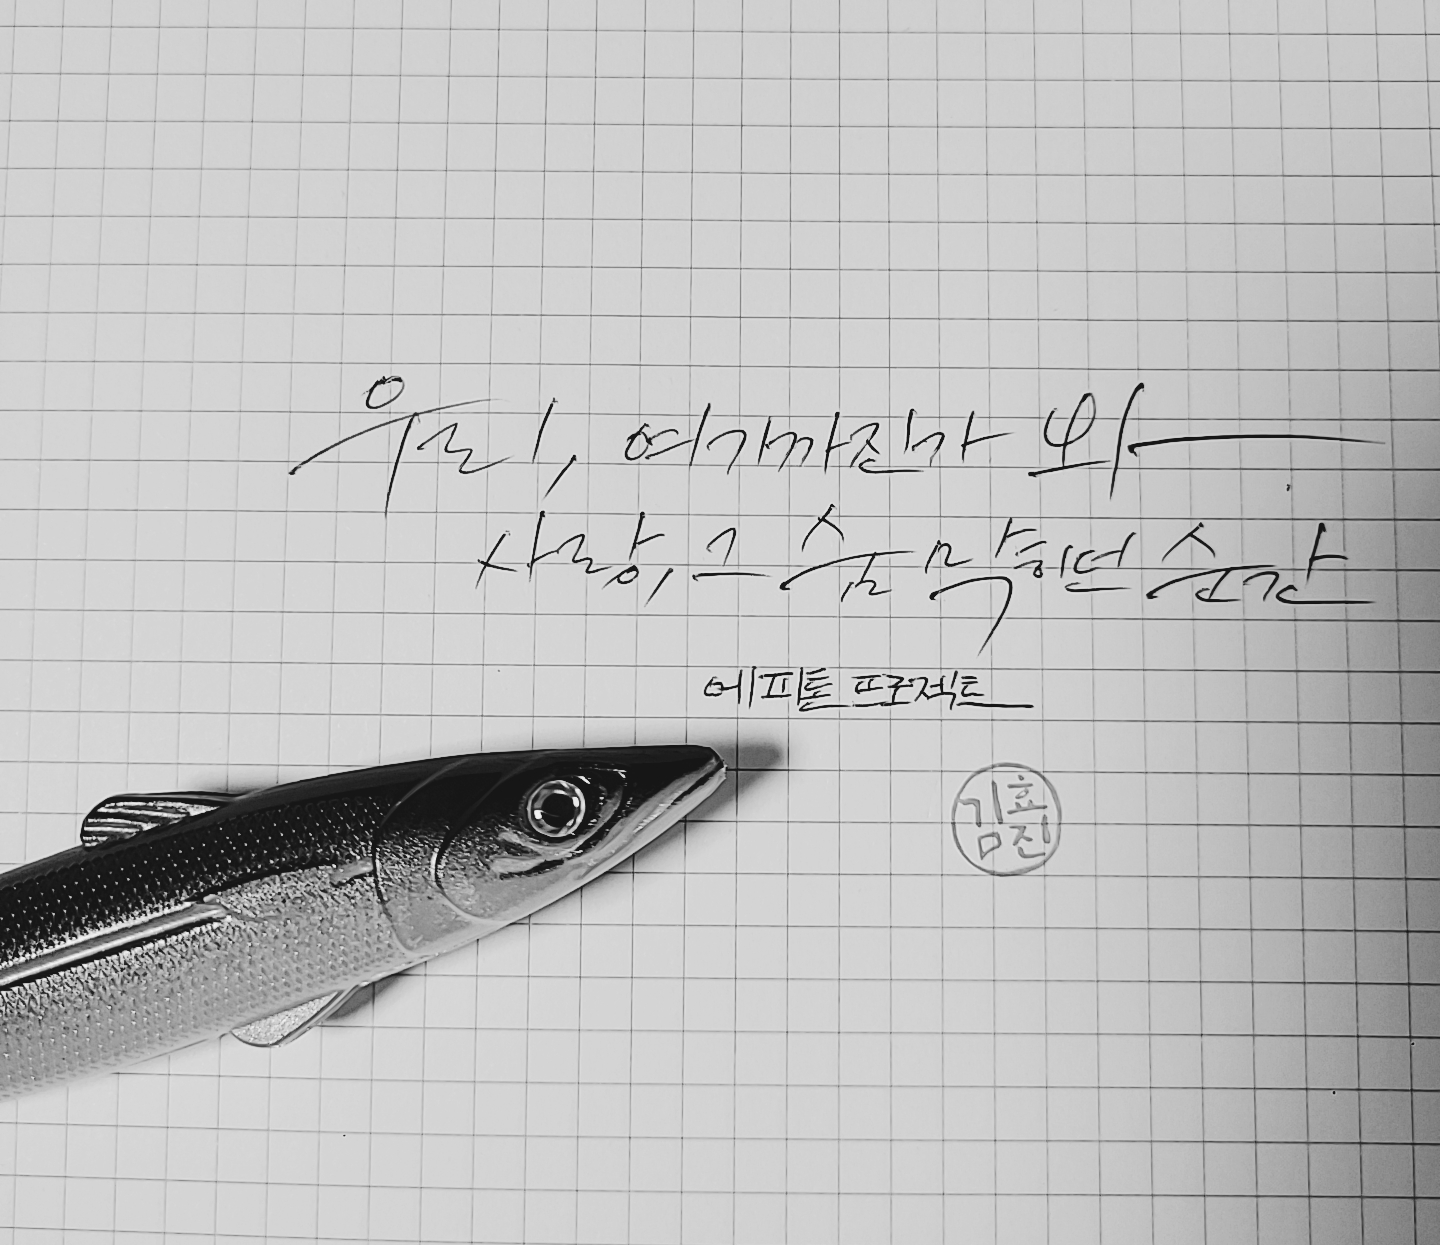 우리, 여기까진가 와
사랑, 그 숨 막히던 순간
에피톤 프로젝트
김효진